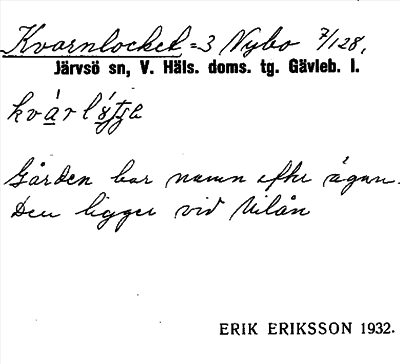 Kvarnlocket = 3 Nybo 7/128,
Järvsö sn, V. Häls. doms. tg. Gävleb. l.
Gården har namn efter ägaren.
Den ligger vid Nilån
ERIK ERIKSSON 1932.